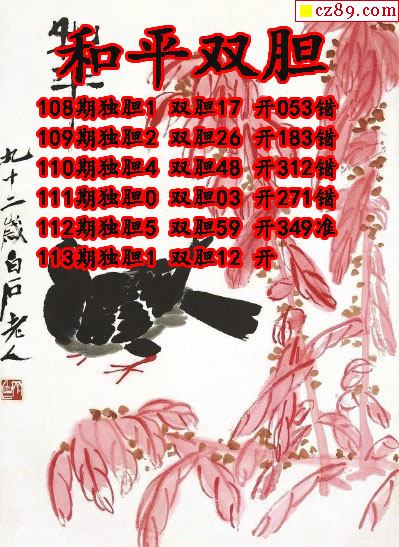 cz89.com
和平双胆
108期独胆1 双胆17 开053错
109期独胆2 双胆26 开183错
110期独胆4 双胆48 开312错
111期独胆0 双胆03 开271错
112期独胆5 双胆59 开349准
113期独胆1 双胆12 开
九十二岁白石老人